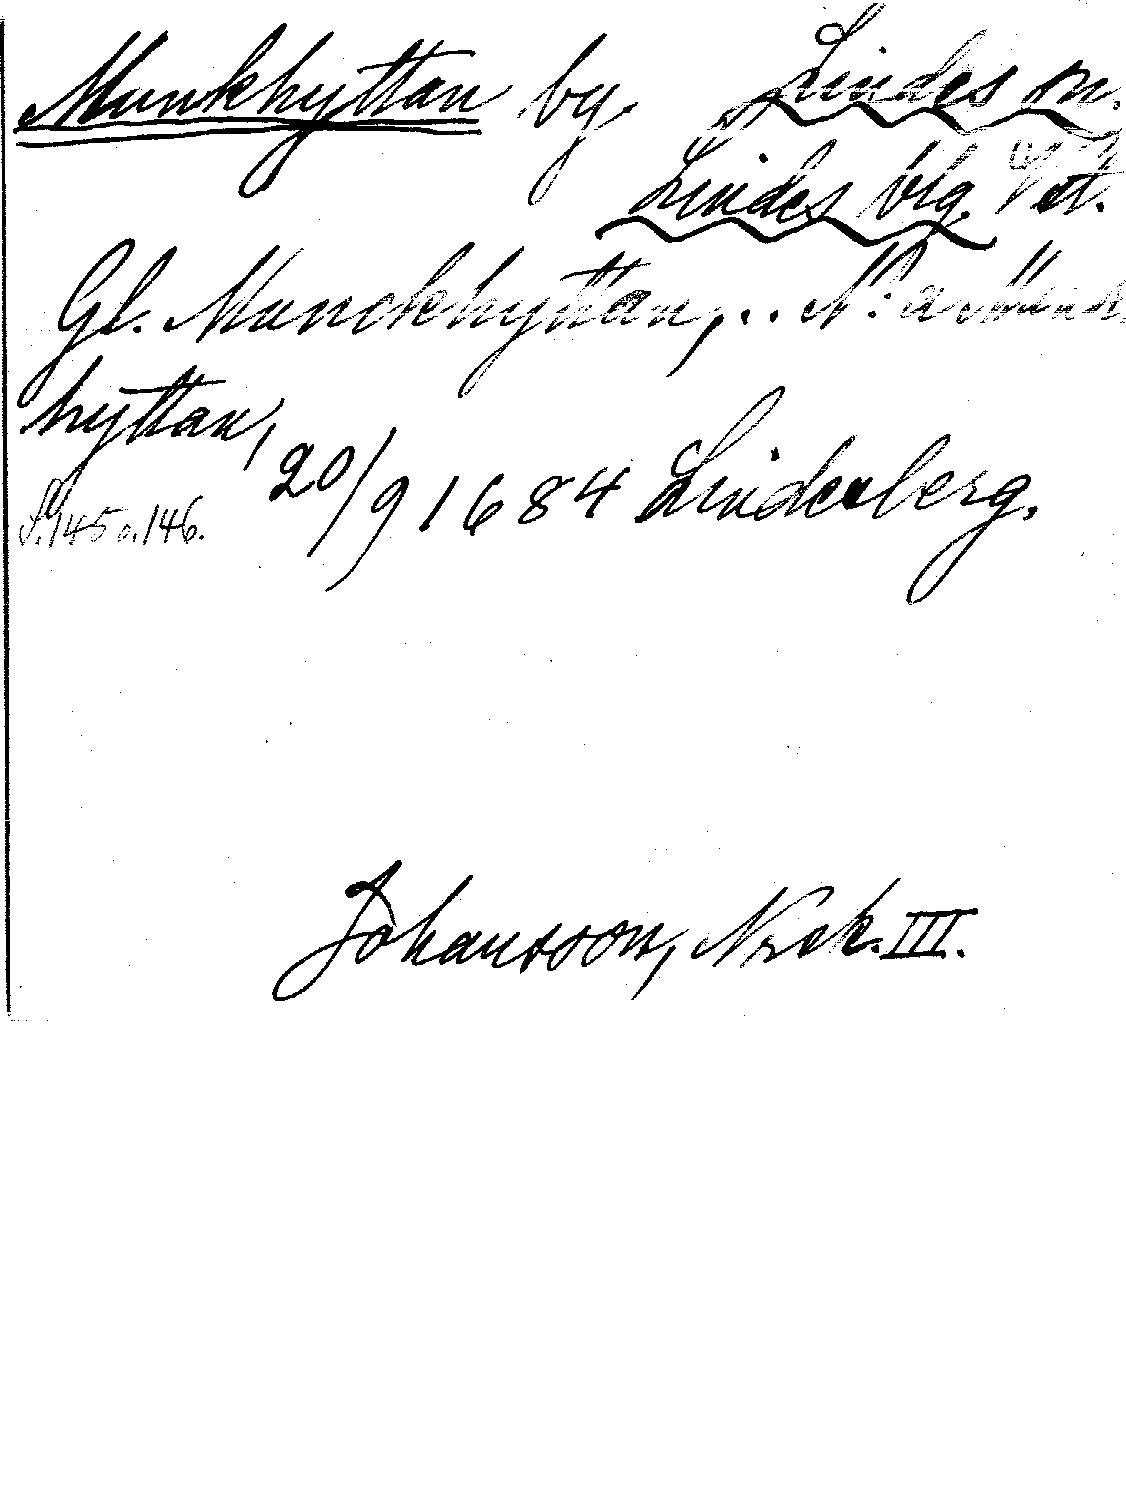 Munkhyttan by. Lindes sn.
Lindes blg. Vst.
Gl. Munckhyttan, .. N:a Munk
hyttan, 20/9 1684 Linderberg.
S. 145 o. 146.
Johansson, Närk. III.